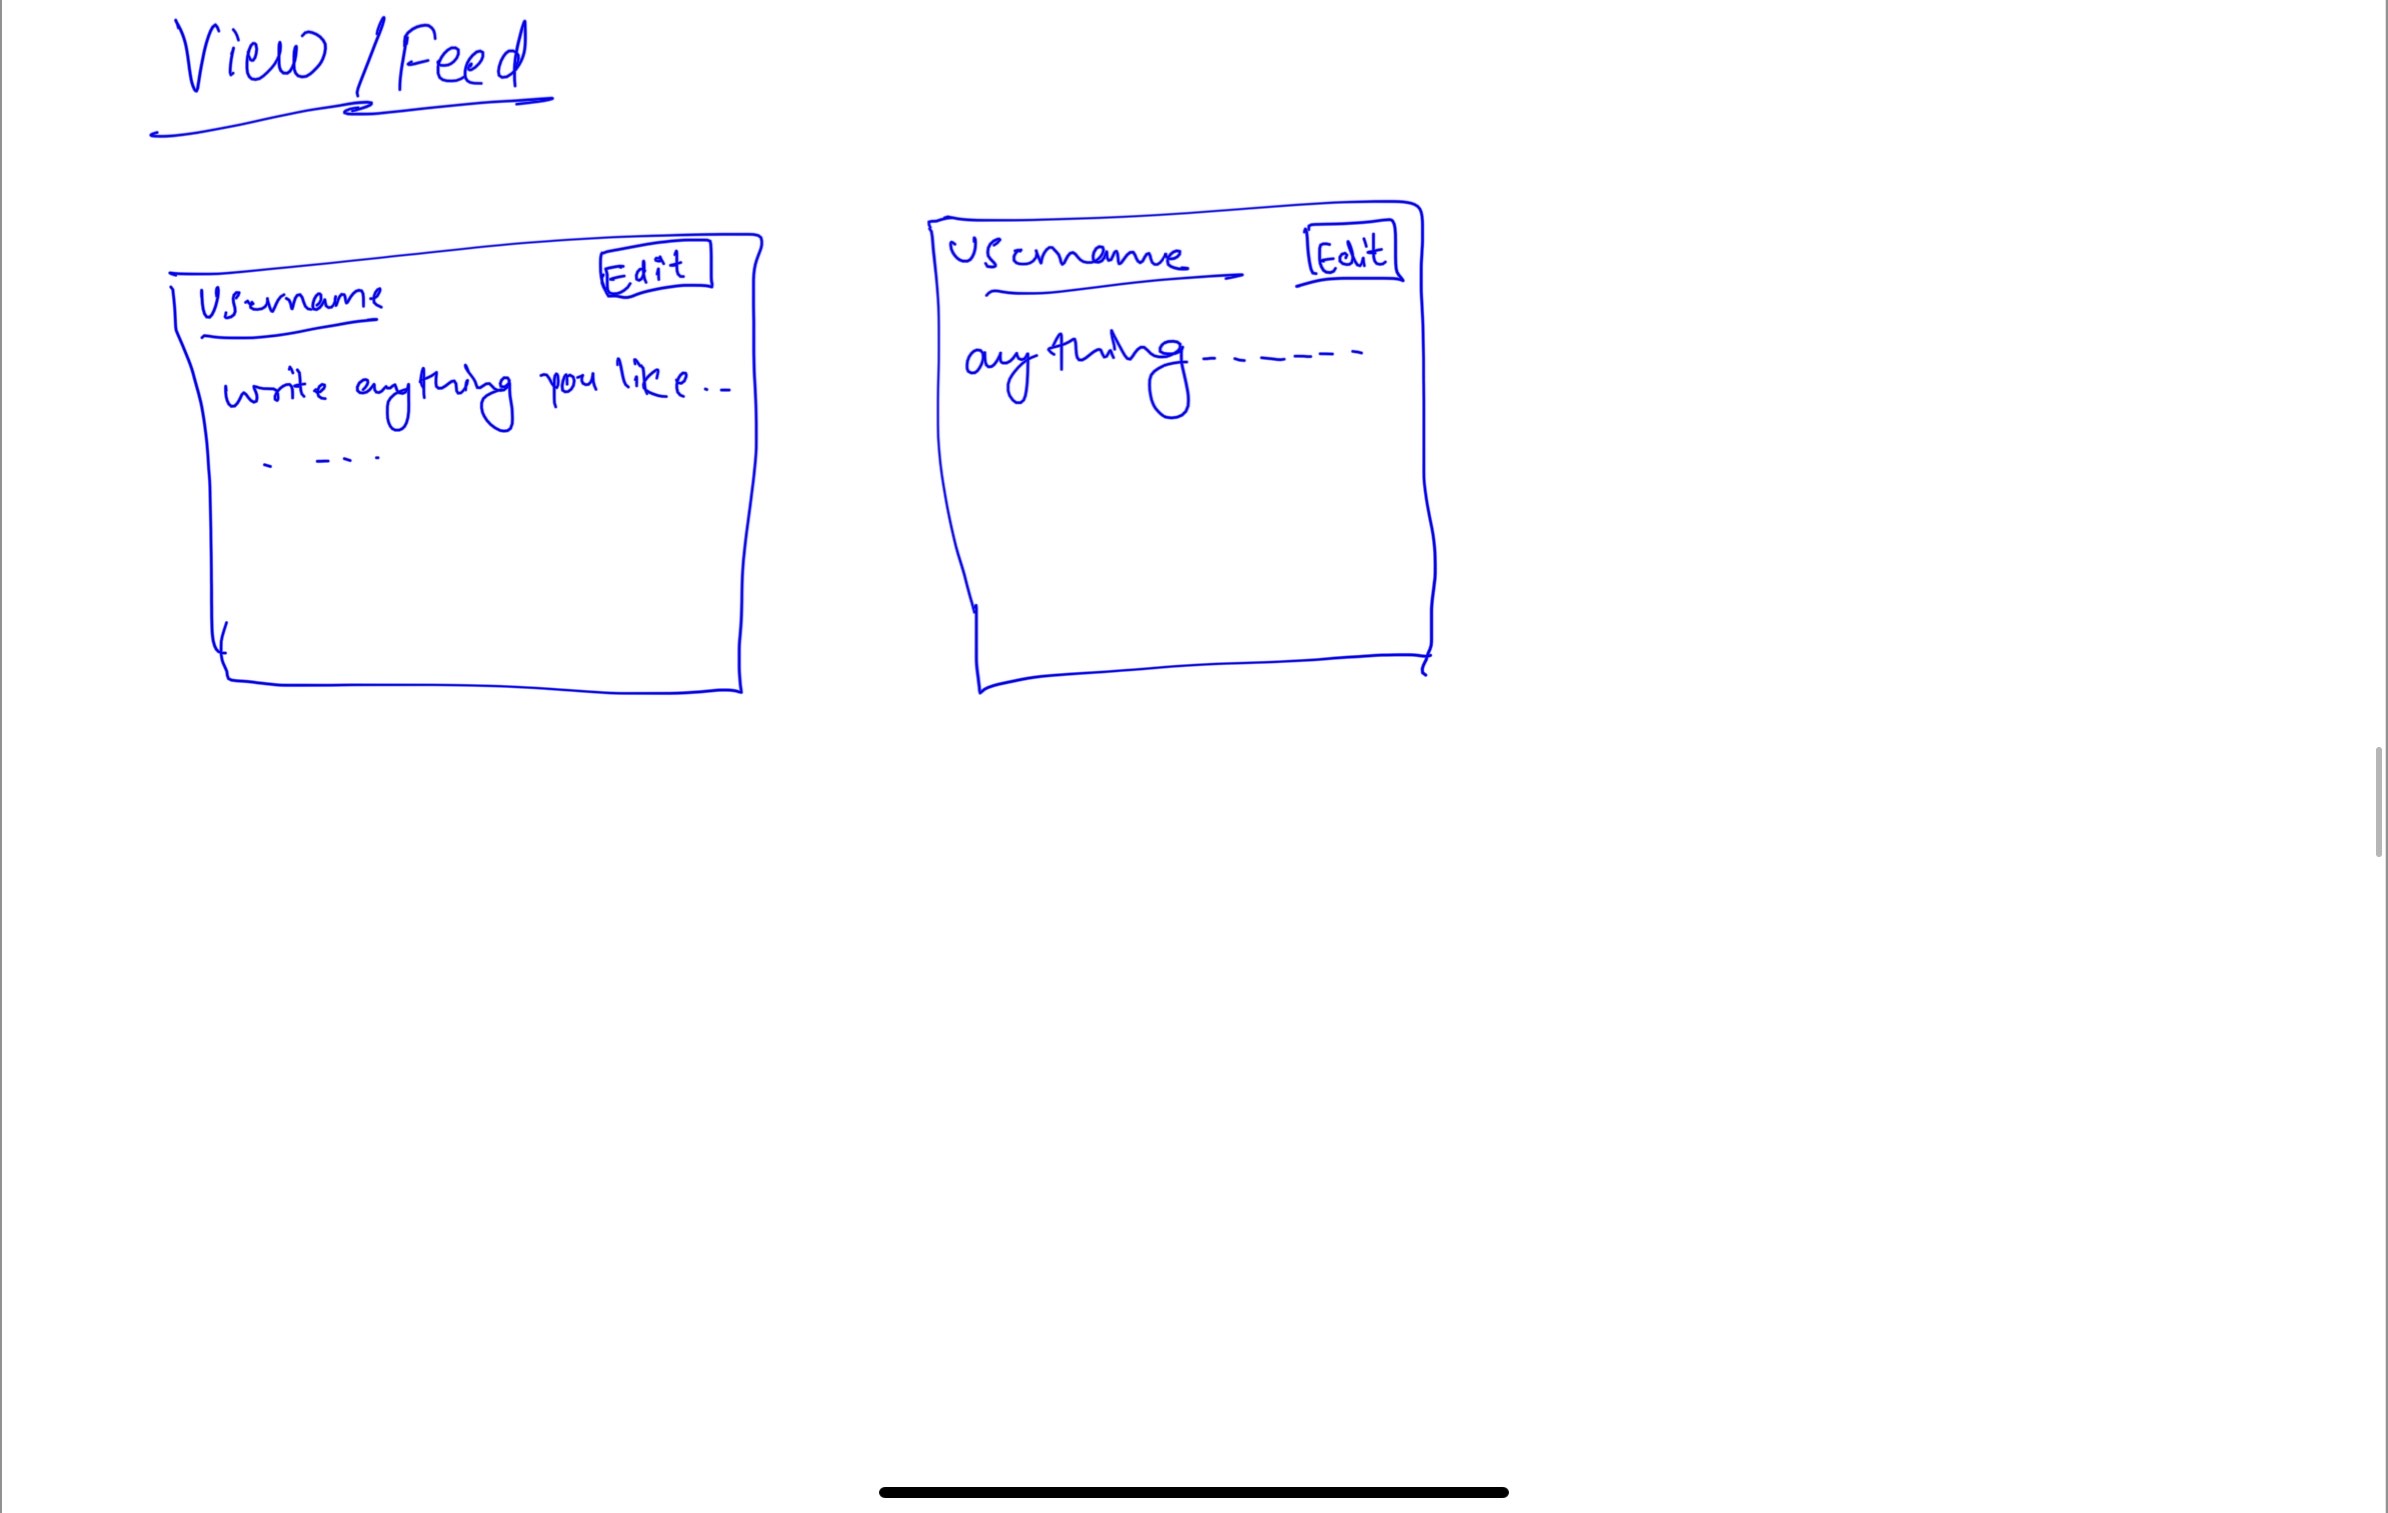 View / Feed
Username
Edit
write anything you like . . -
- - - - .
Username
Edit
anything - - - - - - -